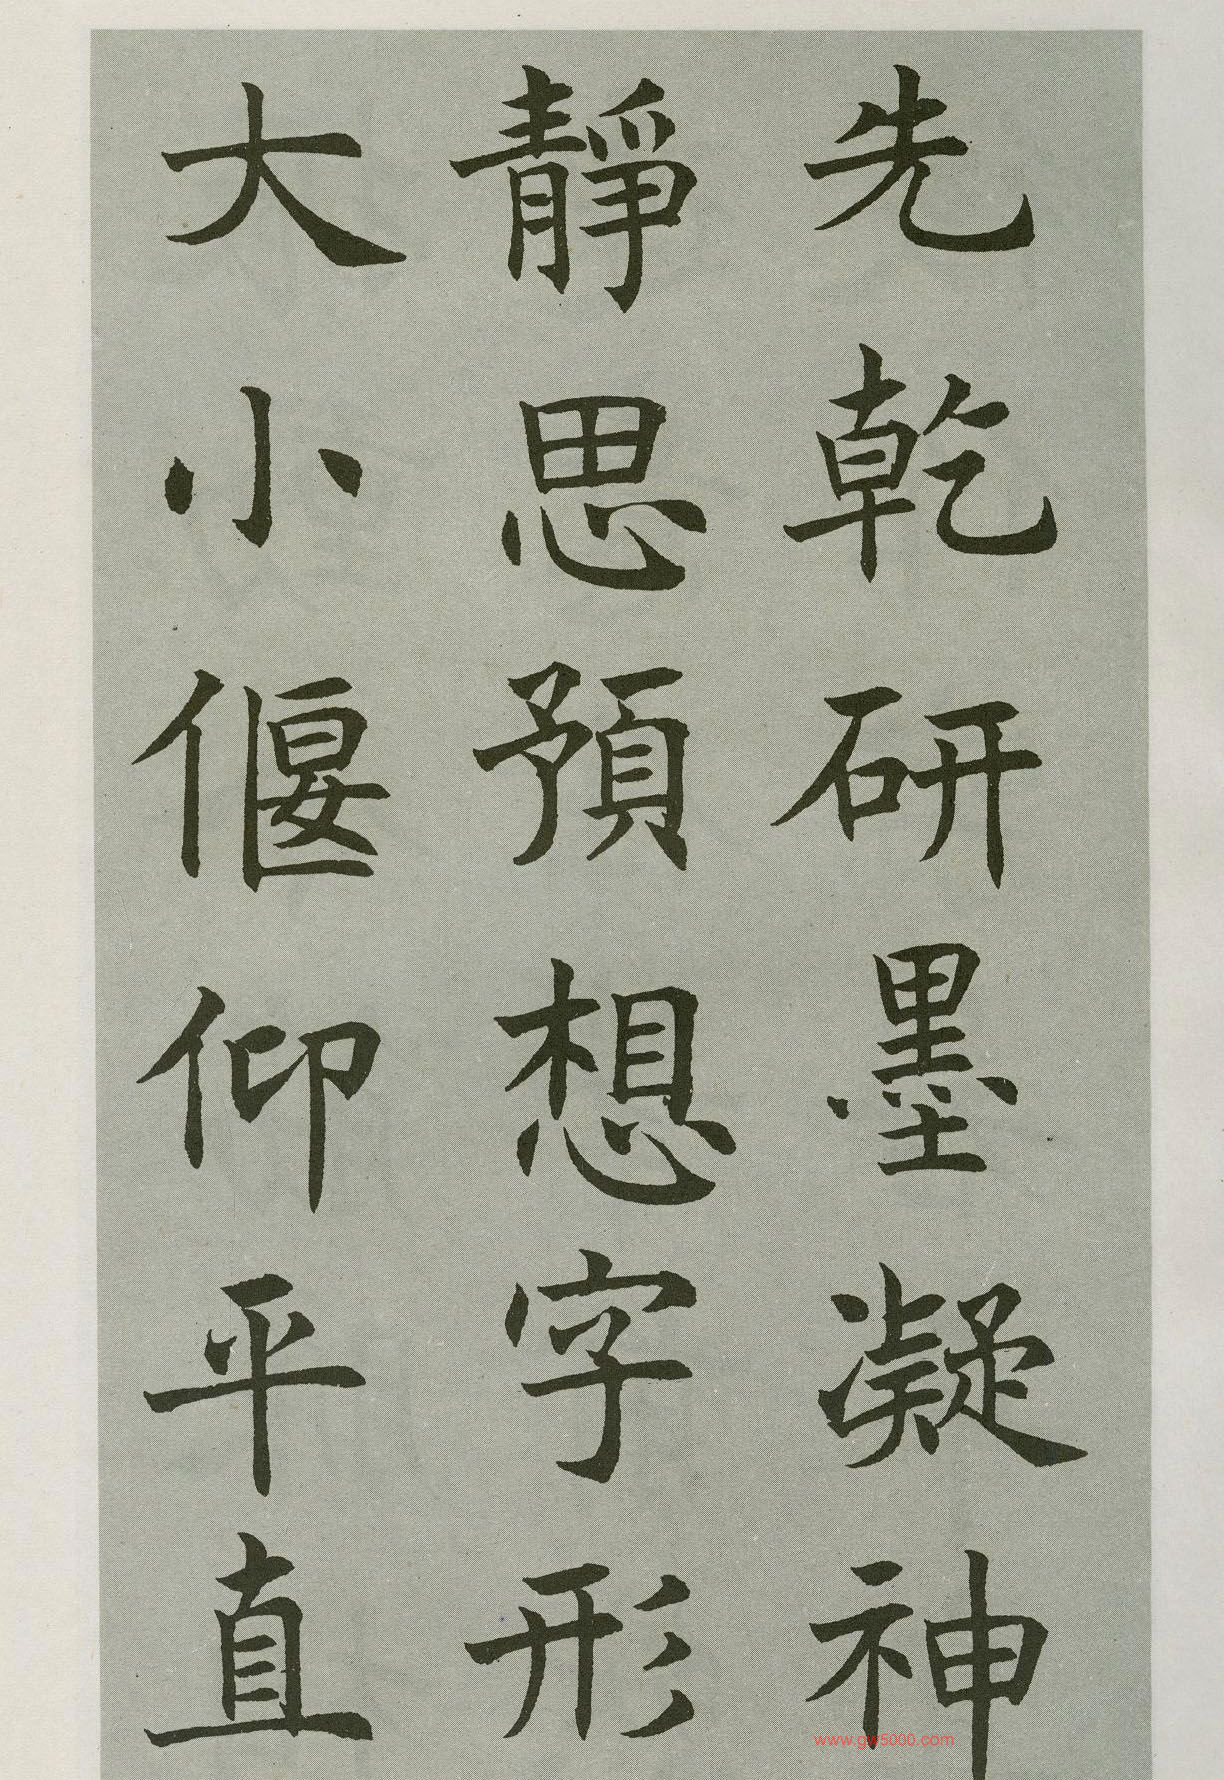 先乾研墨凝神
靜思預想字形
大小偃仰平直
www.gw5000.com